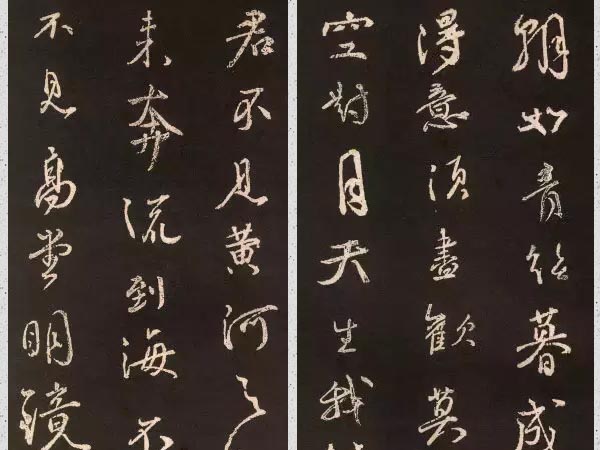 君不見黄河之
来奔流到海不
不見高堂明鏡
朝如青絲暮成
得意須盡歡莫
空對月天生我